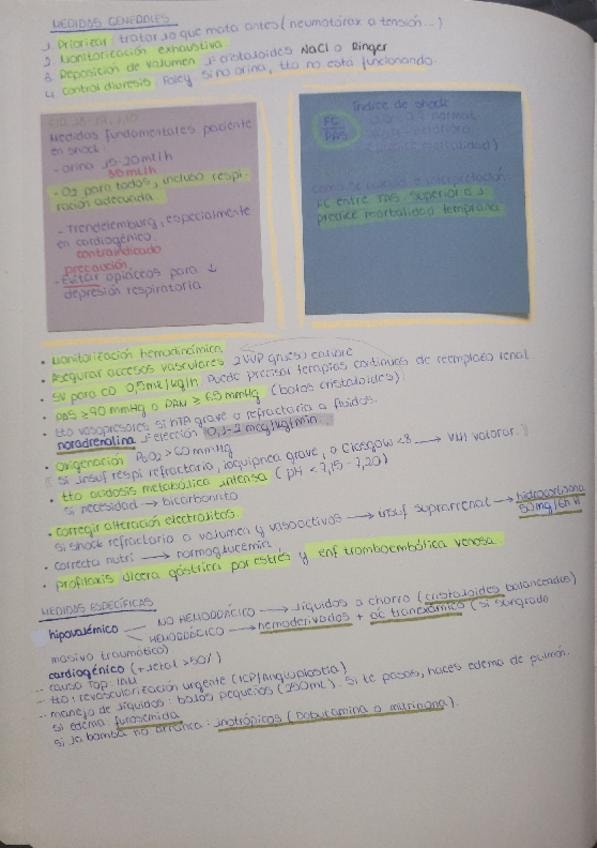 MEDIDAS GENERALES
1. Priorizar: tratar lo que mata antes (neumotórax a tensión...)
2. Monitorización exhaustiva
3. Reposición de volumen 1º cristaloides NaCl o Ringer
4. control diuresis: Foley si no orina, tto no está funcionando.
Medidas fundamentales paciente
en shock:
- orina 15-20ml/h
30ml/h
- O2 para todos, incluso respi-
ración adecuada
- Trendelemburg, especialmente
en cardiogénico.
contraindicado
precaución.
- Evitar opiáceos para ↓
depresión respiratoria
Índice de shock
FC
PAS
normal
mortalidad)
interpretación:
FC entre TAS superior a 1
predice mortalidad temprana
• Monitorización hemodinámica
• Asegurar accesos vasculares 2 VVP grueso calibre
• SV para CD 0,5ml/kg/h Puede precisar terapias continuas de reemplazo renal
• PAS ≥90 mmHg o PAM ≥ 65 mmHg (bolos cristaloides)
• tto vasopresores si hTA grave o refractaria a fluidos.
noradrenalina 1ª elección 0,1-2 mcg/kg/min...
• Oxigenación PaO2 > 60 mmHg
si insuf respi refractario, taquipnea grave, o Glasgow <8 → VMI valorar.
• tto acidosis metabólica intensa (pH < 7,15 - 7,20)
si necesidad → bicarbonato
• corregir alteración electrolitos.
si shock refractario a volumen y vasoactivos → insuf suprarrenal → hidrocortisona
50mg/6h IV
• correcta nutri → normoglucemia
• profilaxis úlcera gástrica por estrés y enf tromboembólica venosa.
MEDIDAS ESPECÍFICAS
hipovolémico NO HEMORRÁGICO → líquidos a chorro (cristaloides balanceados)
HEMORRÁGICO → hemoderivados + ác tranexámico (si sangrado
masivo traumático)
cardiogénico (+ letal >50%)
-- causa top: IAM
-- tto: revascularización urgente (ICP/Angioplastia)
-- manejo de líquidos: bolos pequeños (250ml). Si te pasas, haces edema de pulmón.
si edema: furosemida
si la bomba no arranca: inotrópicos (Dobutamina o milrinona).